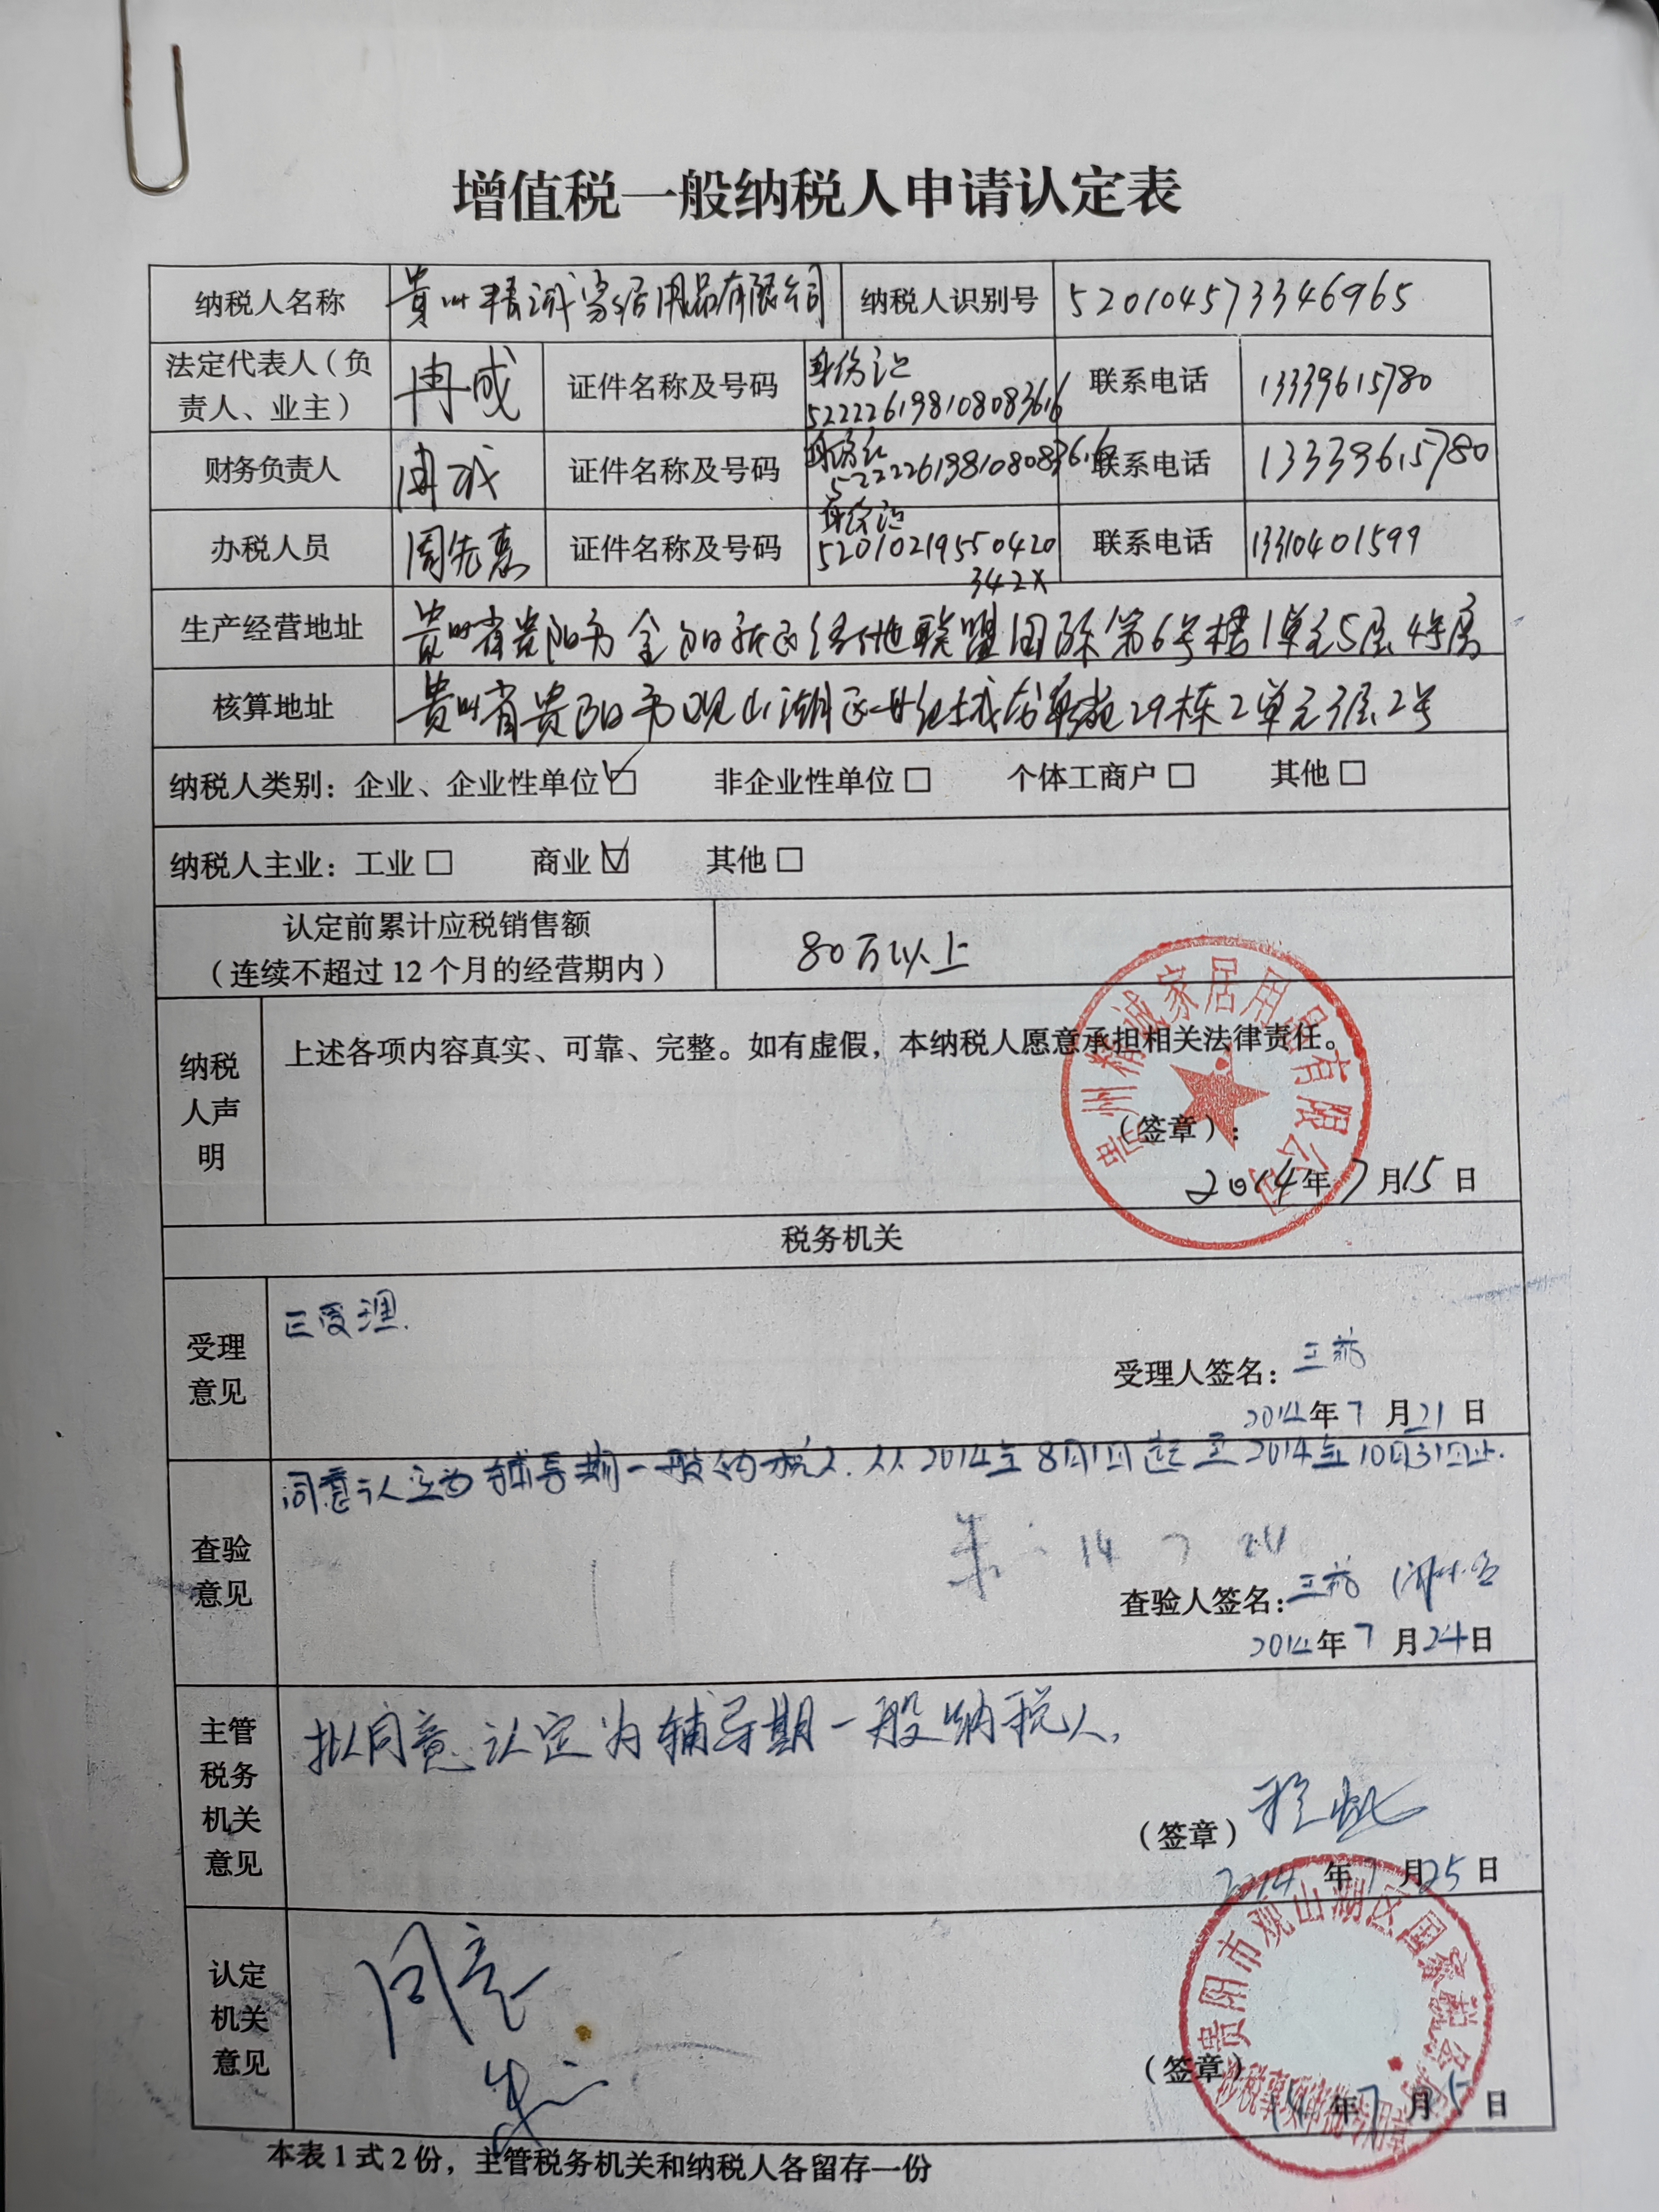 增值税一般纳税人申请认定表
纳税人名称 贵州精诚家居用品有限公司 纳税人识别号 520104573346965
法定代表人（负责人、业主） 冉成 证件名称及号码 身份证 522226198108083616 联系电话 13339615780
财务负责人 冉成 证件名称及号码 身份证 522226198108083616 联系电话 13339615780
办税人员 周先惠 证件名称及号码 身份证 52010219550420342X 联系电话 13310401599
生产经营地址 贵州省贵阳市金阳新区绿地联盟国际第6号楼1单元5层4号房
核算地址 贵州省贵阳市观山湖区世纪城龙 苑29栋2单元 层2号
纳税人类别：企业、企业性单位☑ 非企业性单位□ 个体工商户□ 其他□
纳税人主业：工业□ 商业☑ 其他□
认定前累计应税销售额
（连续不超过12个月的经营期内） 80万以上
纳税人声明
上述各项内容真实、可靠、完整。如有虚假，本纳税人愿意承担相关法律责任。
贵州精诚家居用品有限公司
（签章）：
2014年7月15日
税务机关
受理意见
已受理.
受理人签名：
2014年7月21日
查验意见
同意认定为辅导期一般纳税人.从2014年8月1日起至2014年10月31日止.
14 7 24
查验人签名：
2014年7月24日
主管税务机关意见
拟同意认定为辅导期一般纳税人.
（签章）
2014年7月25日
认定机关意见
同意
贵阳市观山湖区国家税务局
涉税事项审批专用章
（签章）
年7月 日
本表1式2份，主管税务机关和纳税人各留存一份